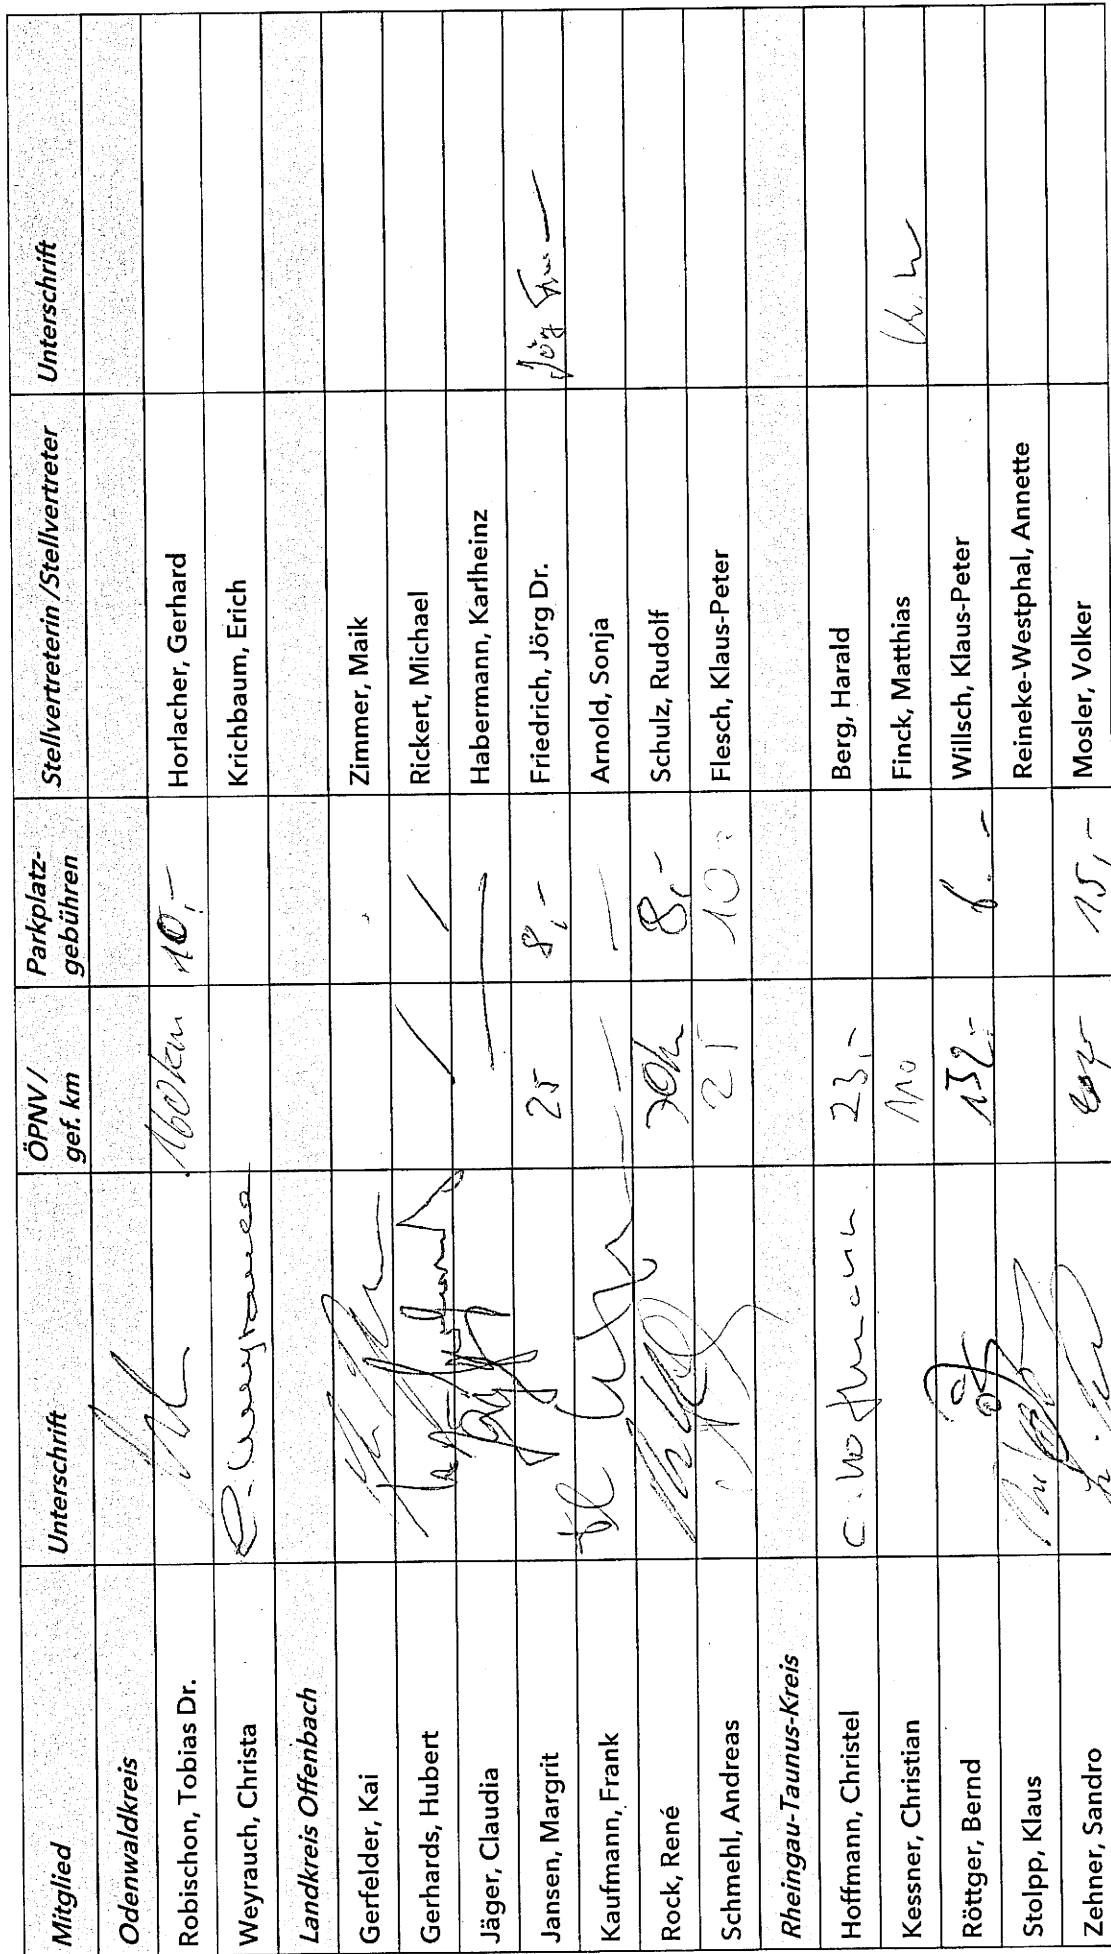 Mitglied Unterschrift ÖPNV / gef. km Parkplatz-gebühren Stellvertreterin /Stellvertreter Unterschrift
Odenwaldkreis
Robischon, Tobias Dr. 160 km 10,- Horlacher, Gerhard
Weyrauch, Christa C. Weyrauch Krichbaum, Erich
Landkreis Offenbach
Gerfelder, Kai Zimmer, Maik
Gerhards, Hubert / / Rickert, Michael
Jäger, Claudia — — Habermann, Karlheinz
Jansen, Margrit 25 8,- Friedrich, Jörg Dr. Jörg
Kaufmann, Frank — — Arnold, Sonja
Rock, René 8,- Schulz, Rudolf
Schmehl, Andreas 25 10 Flesch, Klaus-Peter
Rheingau-Taunus-Kreis
Hoffmann, Christel C. Hoffmann 23,- Berg, Harald
Kessner, Christian 110 Finck, Matthias
Röttger, Bernd 132.- 6.- Willsch, Klaus-Peter
Stolpp, Klaus Reineke-Westphal, Annette
Zehner, Sandro 15,- Mosler, Volker